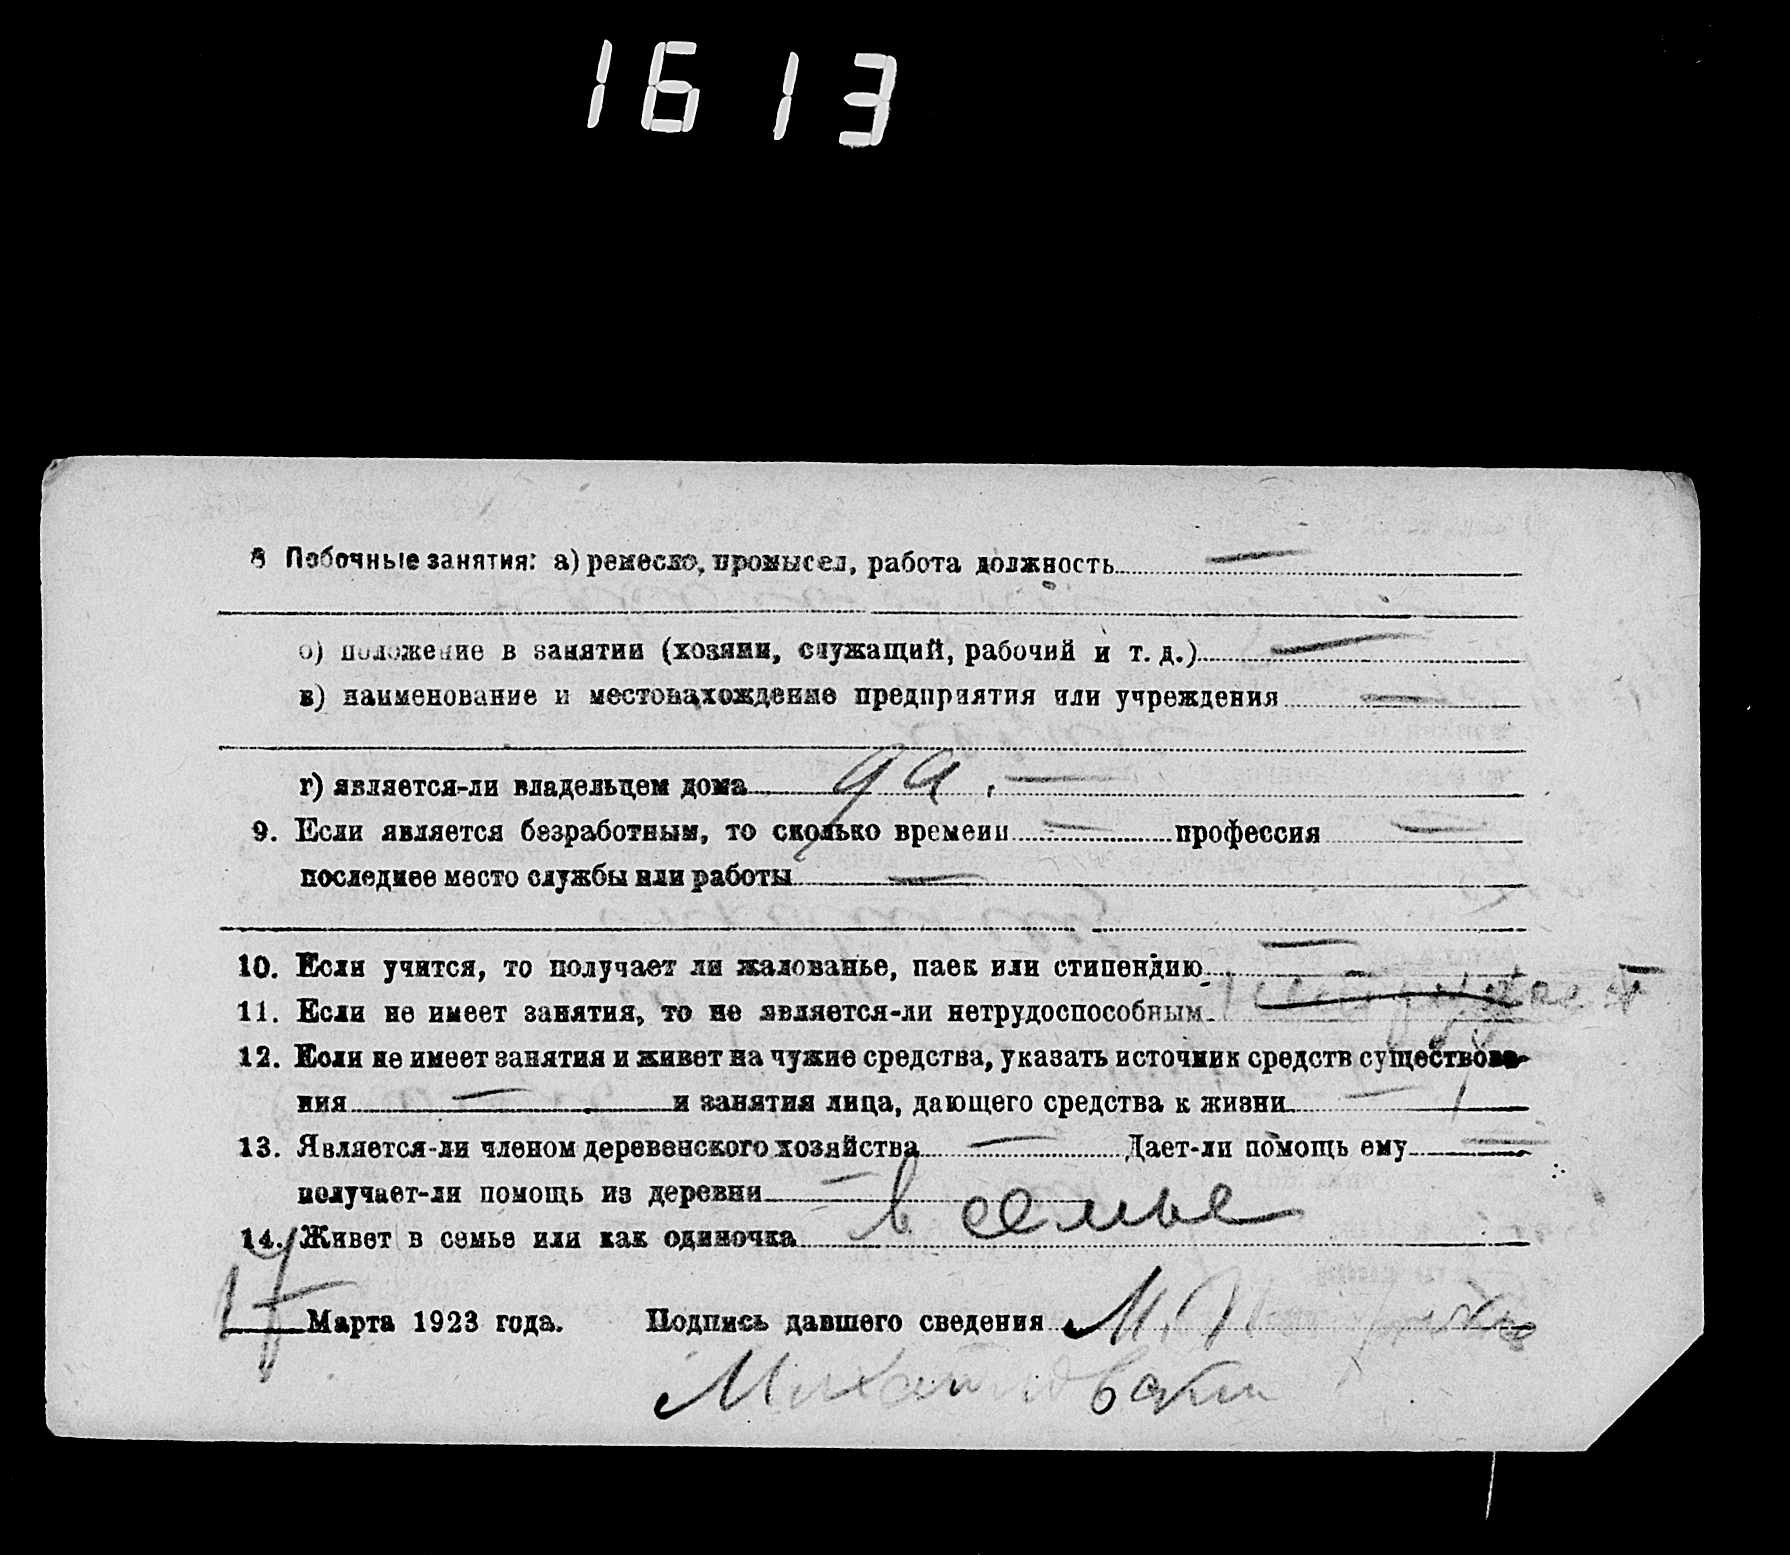 1613
8 Побочные занятия: а) ремесло, промысел, работа должность —
о) положение в занятии (хозяин, служащий, рабочий и т. д.) —
в) наименование и местонахождение предприятия или учреждения —
г) является-ли владельцем дома да. —
9. Если является безработным, то сколько времени — профессия —
последнее место службы или работы —
10. Если учится, то получает ли жалованье, паек или стипендию —
11. Если не имеет занятия, то не является-ли нетрудоспособным
12. Если не имеет занятия и живет на чужие средства, указать источник средств существова-
ния — и занятия лица, дающего средства к жизни —
13. Является-ли членом деревенского хозяйства — Дает-ли помощь ему —
получает-ли помощь из деревни —
14. Живет в семье или как одиночка в семье
17 Марта 1923 года. Подпись давшего сведения М.